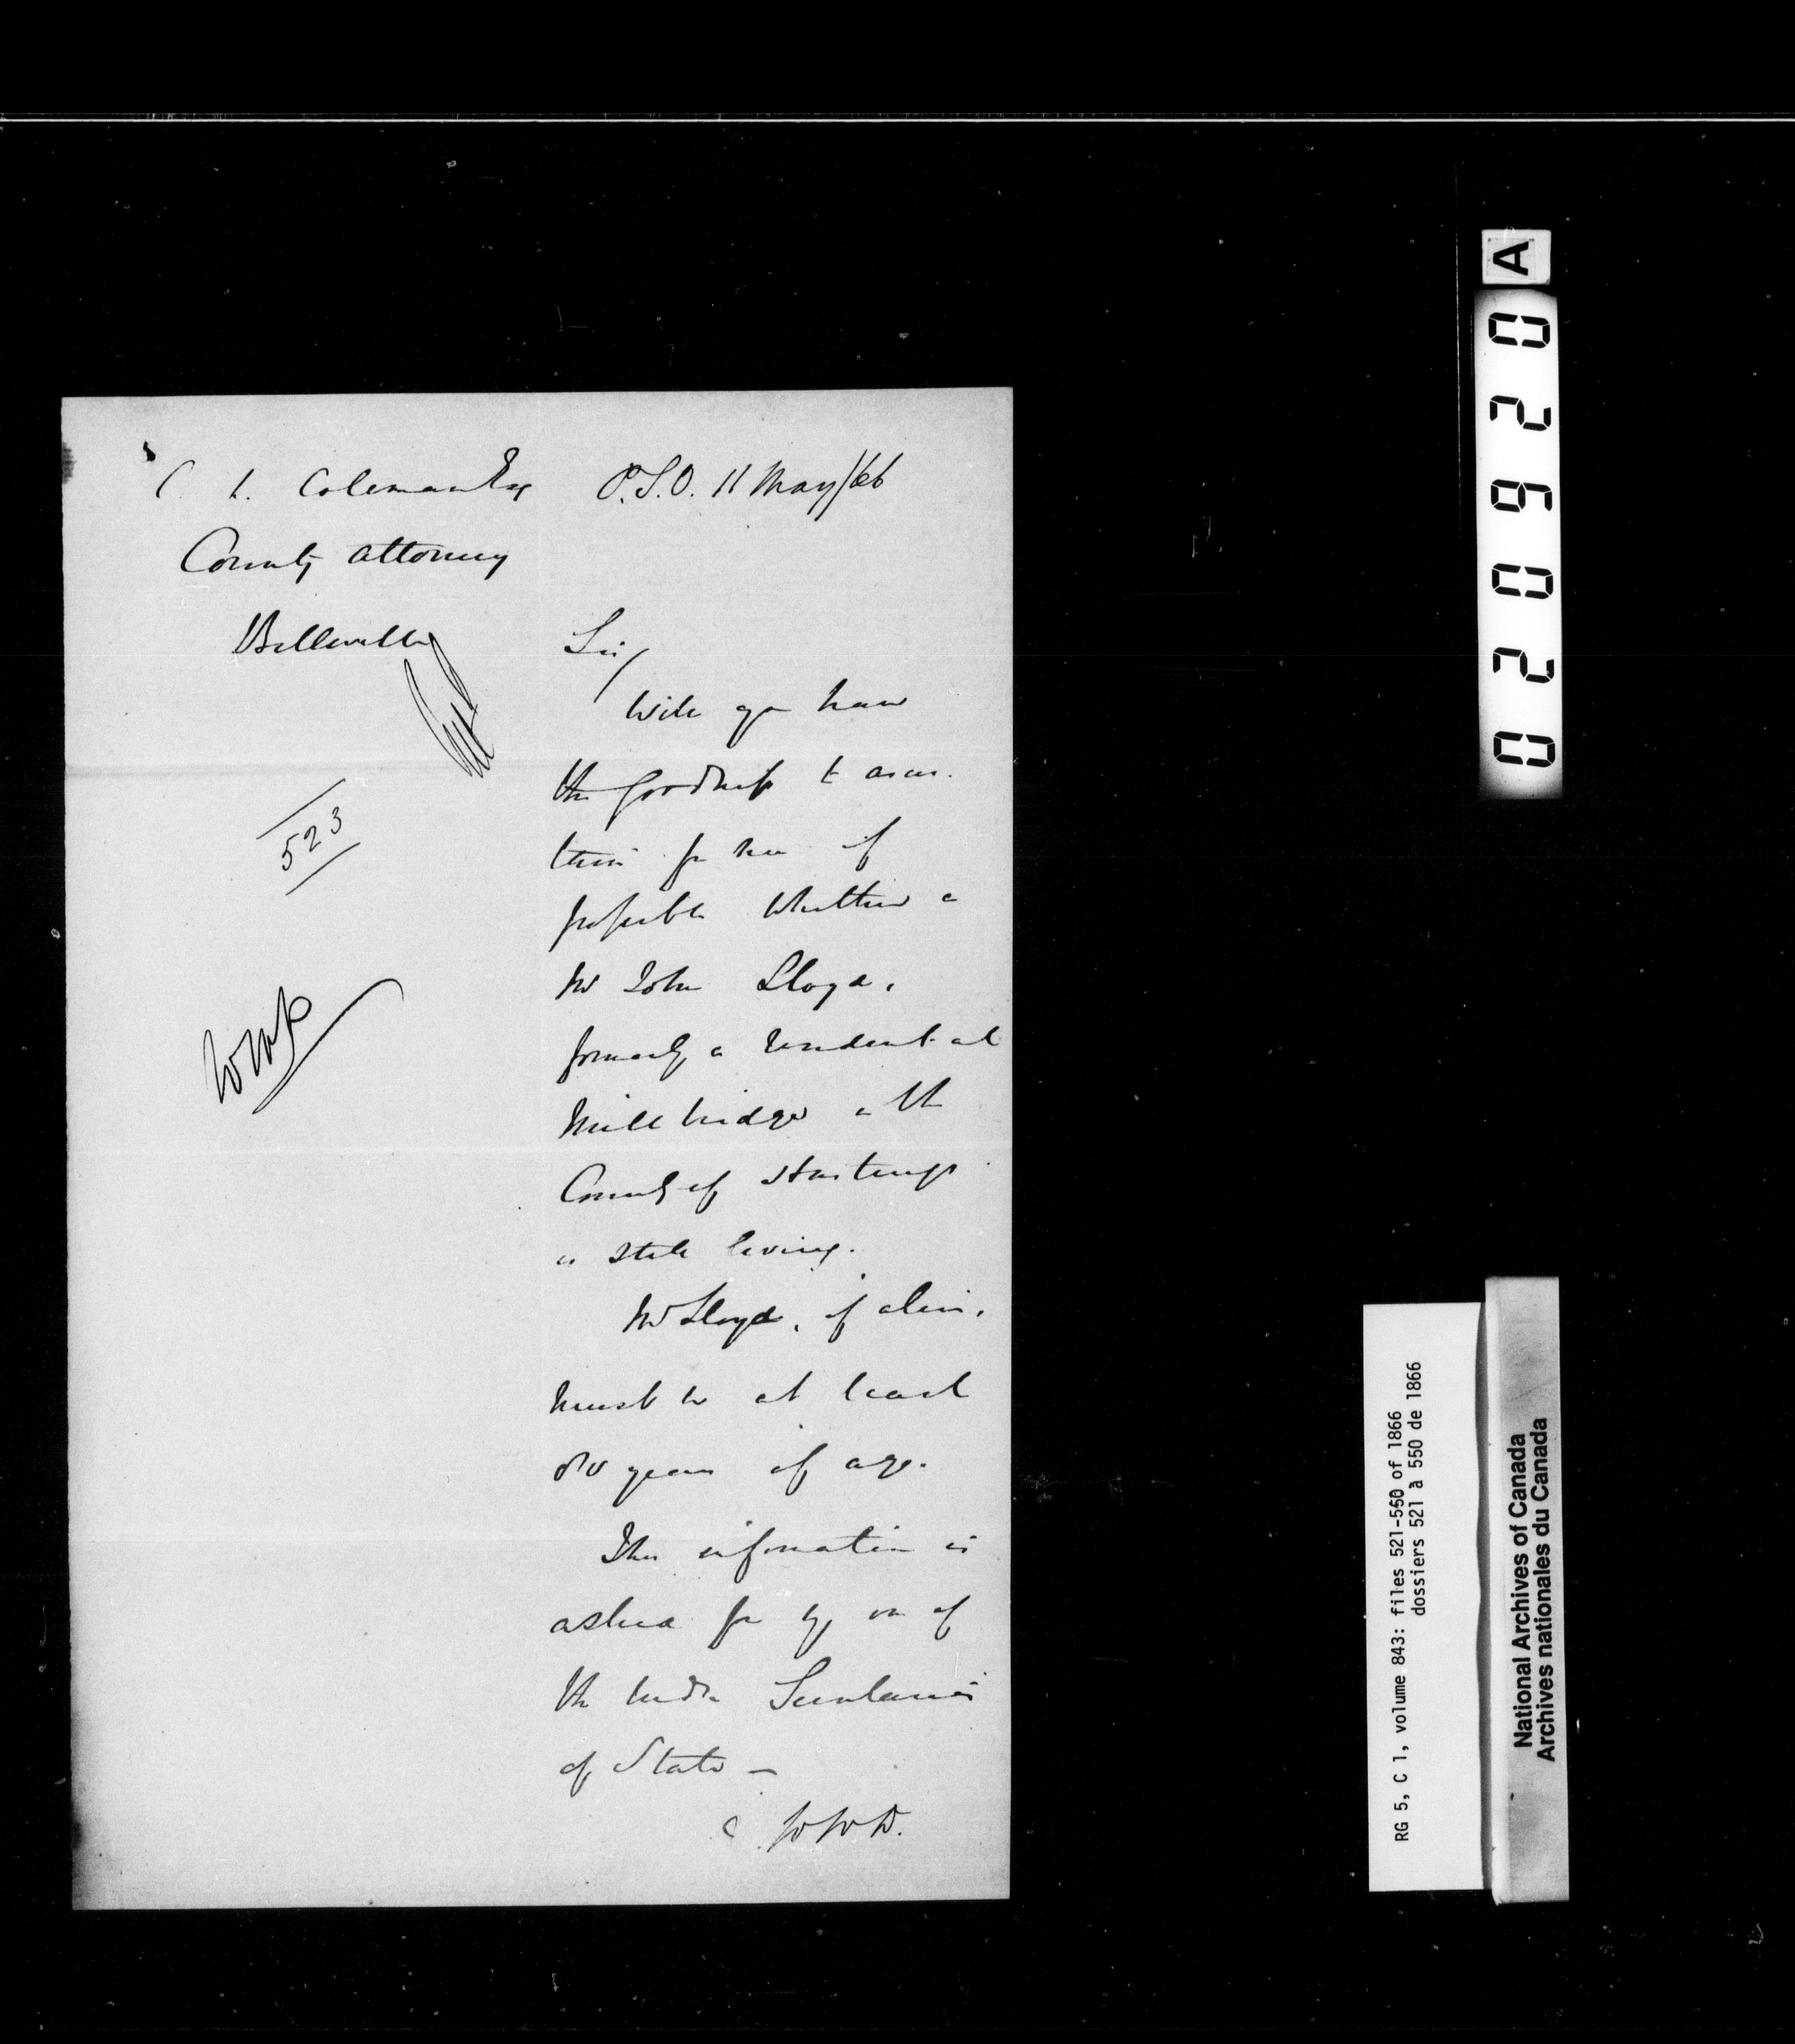 C. L. Coleman Esq
County Attorney
Belleville
P.S.O. 11 May/66
Sir/
Will you have
the goodness to ascer-
tain for me if
possible whether a
Mr John Lloyd,
formerly a resident at
Millbridge in the
County of Hastings
is still living.
Mr Lloyd, if alive,
must be at least
years of age.
The information is
asked for by one of
the Under Secretaries
of State —
523
A
020920
RG 5, C 1, volume 843: files 521-550 of 1866
dossiers 521 à 550 de 1866
National Archives of Canada
Archives nationales du Canada